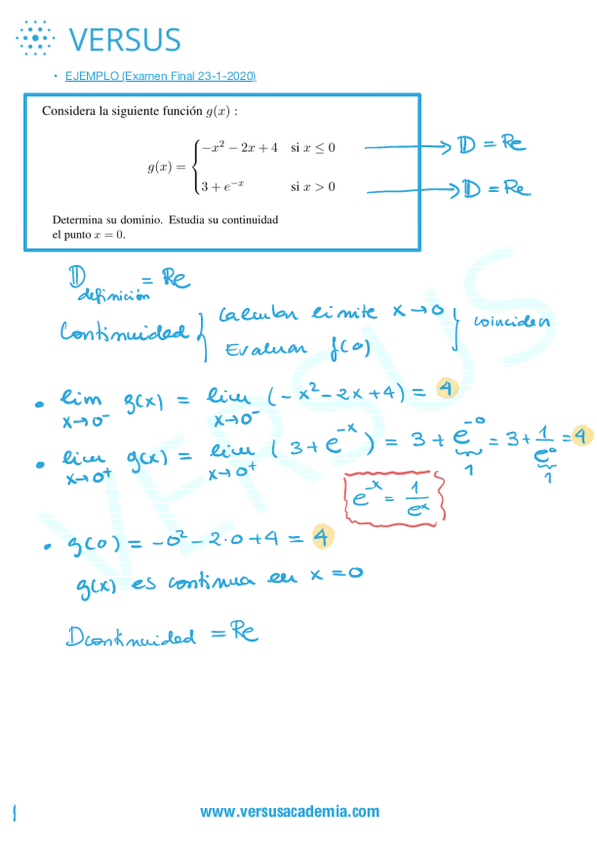 VERSUS
• EJEMPLO (Examen Final 23-1-2020)
Considera la siguiente función g(x) :
g(x) = { −x² − 2x + 4 si x ≤ 0 → D = Re
3 + e⁻ˣ si x > 0 → D = Re
Determina su dominio. Estudia su continuidad
el punto x = 0.
D definición = Re
Continuidad } Calcular limite x→0 } coinciden
Evaluar f(0)
• lim x→0⁻ g(x) = lim x→0⁻ (−x²−2x+4) = 4
• lim x→0⁺ g(x) = lim x→0⁺ (3+e⁻ˣ) = 3 + e⁻⁰ = 3 + 1/e⁰ = 4
1 1
e⁻ˣ = 1/eˣ
• g(0) = −0²−2·0+4 = 4
g(x) es continua en x = 0
D continuidad = Re
www.versusacademia.com
VERSUS